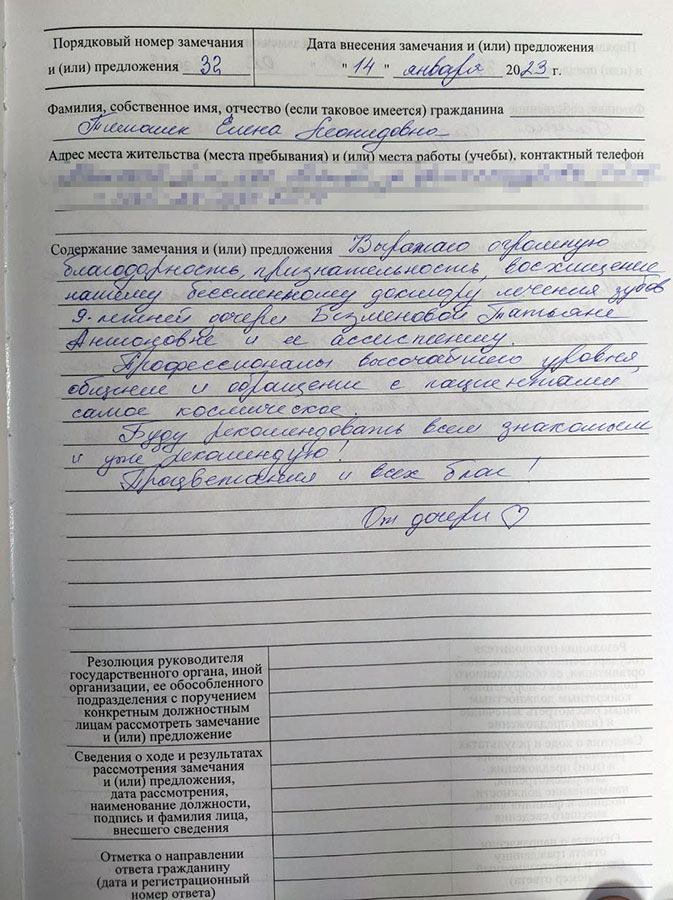 Порядковый номер замечания
и (или) предложения 32
Дата внесения замечания и (или) предложения
"14" января 2023 г.
Фамилия, собственное имя, отчество (если таковое имеется) гражданина
Тимошек Елена Леонидовна
Адрес места жительства (места пребывания) и (или) места работы (учебы), контактный телефон
Содержание замечания и (или) предложения Выражаю огромную
благодарность, признательность, восхищение
нашему бессменному доктору лечения зубов
9-летней дочери Безменовой Татьяне
Антоновне и ее ассистенту.
Профессионалы высочайшего уровня,
общение и обращение с пациентами
самое космическое.
Буду рекомендовать всем знакомым
и уже рекомендую!
Процветания и всех благ!
От дочери ♡
Резолюция руководителя
государственного органа, иной
организации, ее обособленного
подразделения с поручением
конкретным должностным
лицам рассмотреть замечание
и (или) предложение
Сведения о ходе и результатах
рассмотрения замечания
и (или) предложения,
дата рассмотрения,
наименование должности,
подпись и фамилия лица,
внесшего сведения
Отметка о направлении
ответа гражданину
(дата и регистрационный
номер ответа)